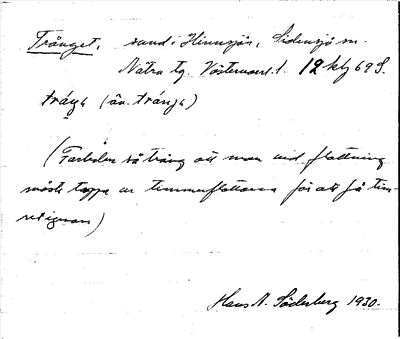 Trånget, sund i Hinnsjön, Sidensjö sn.
Nätra tg. Västernorrl. l. 12 kbg 69 S.
tráŋa (än. tráŋa)
(Farleden så trång att man vid flottning
måste tappa ur timmerflottarna för att få tim-
ret igenom)
Hans N. Söderberg 1930.